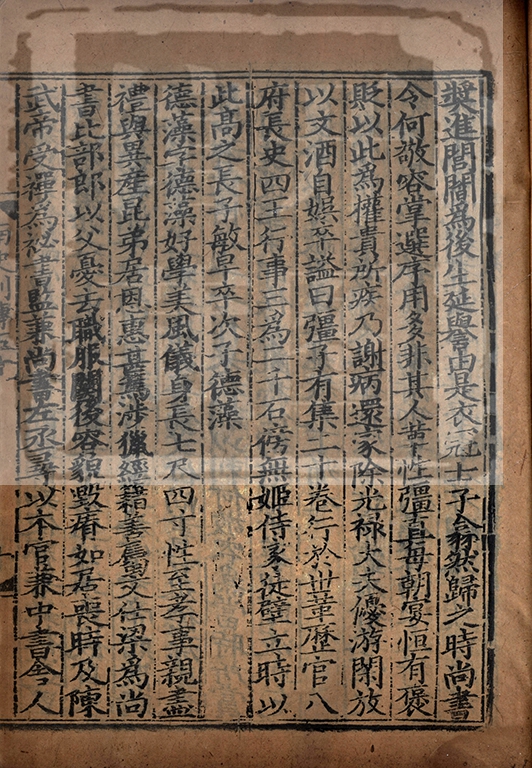 奬進閭閻為後生延譽由是衣冠士子翕然歸之時尚書
令何敬容掌選序用多非其人𦲷性彊直每朝宴恒有褒
貶以此為權貴所疾乃謝病還家除光禄大夫優游閑放
以文酒自娯卒謚曰彊子有集二十卷行於世𦲷歷官八
府長史四王行事三為二千石傍無姬侍家徒壁立時以
此髙之長子敏早卒次子德藻
德藻字德藻好學美風儀身長七尺四寸性至孝事親盡
禮與異産昆弟居恩惠甚篤涉獵經籍善屬文仕梁為尚
書比部郎以父憂去職服闋後容貌毀瘠如居喪時及陳
武帝受禪為祕書監兼尚書左丞尋以本官兼中書舍人